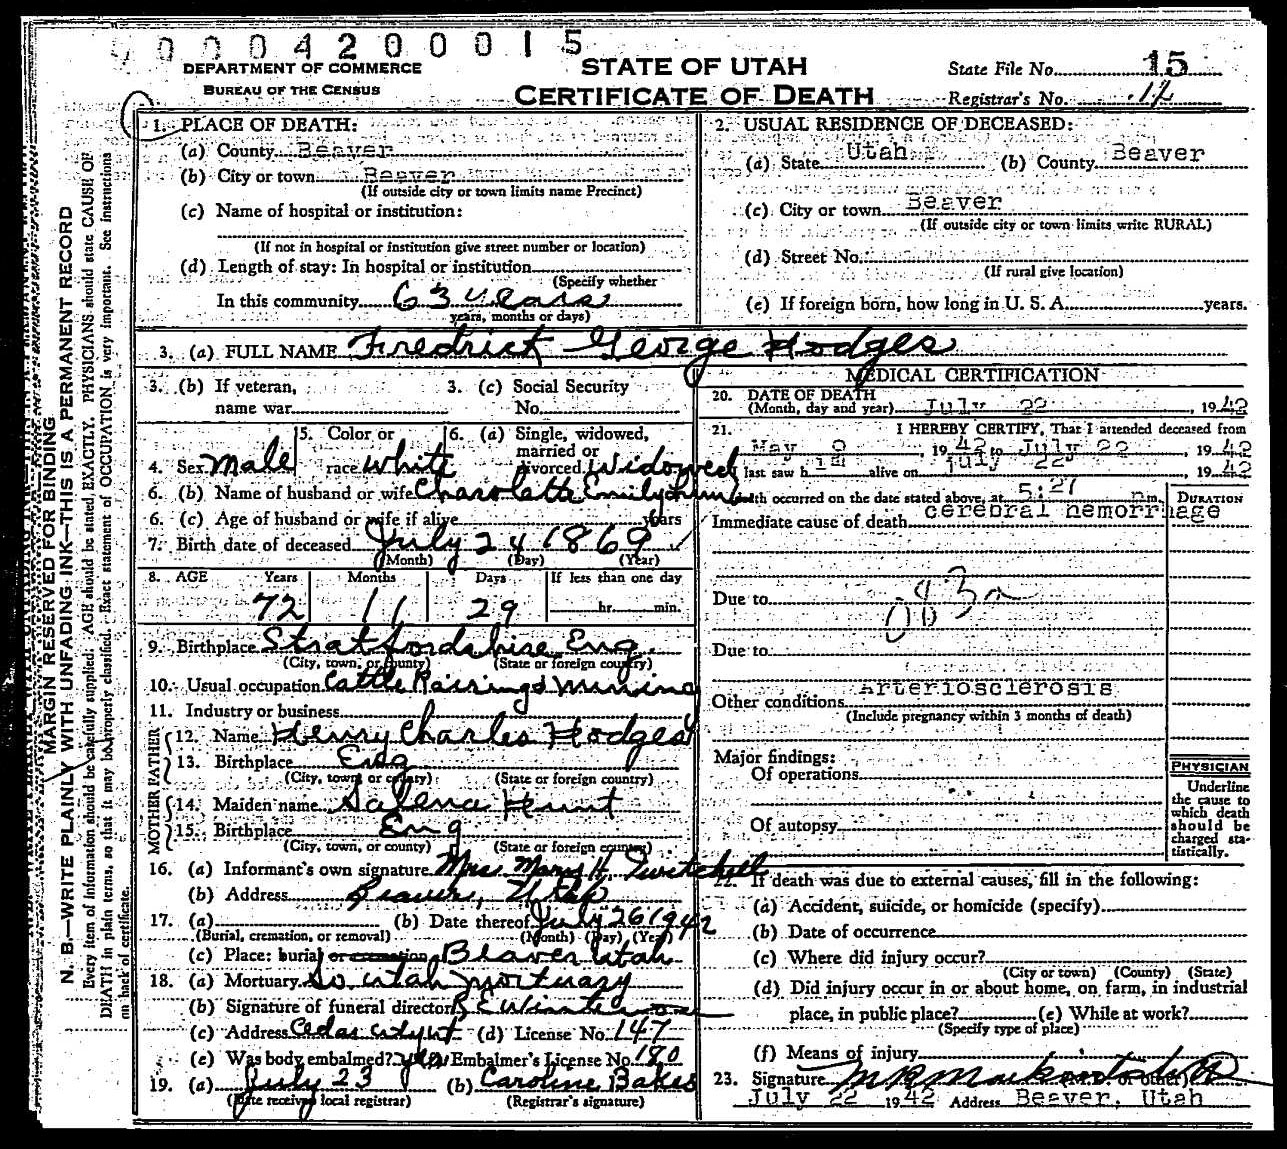 00004200015
DEPARTMENT OF COMMERCE
BUREAU OF THE CENSUS
STATE OF UTAH
CERTIFICATE OF DEATH
State File No. 15
Registrar's No. 14
MARGIN RESERVED FOR BINDING
N. B.—WRITE PLAINLY WITH UNFADING INK—THIS IS A PERMANENT RECORD
Every item of information should be carefully supplied. AGE should be stated EXACTLY. PHYSICIANS should state CAUSE OF
DEATH in plain terms, so that it may be properly classified. Exact statement of OCCUPATION is very important. See instructions
on back of certificate.
1. PLACE OF DEATH:
(a) County Beaver
(b) City or town Beaver
(If outside city or town limits name Precinct)
(c) Name of hospital or institution:
(If not in hospital or institution give street number or location)
(d) Length of stay: In hospital or institution
(Specify whether
In this community 63 years
years, months or days)
2. USUAL RESIDENCE OF DECEASED:
(a) State Utah (b) County Beaver
(c) City or town Beaver
(If outside city or town limits write RURAL)
(d) Street No.
(If rural give location)
(e) If foreign born, how long in U. S. A. years.
3. (a) FULL NAME Fredrick George Hodges
3. (b) If veteran, name war
3. (c) Social Security No.
4. Sex Male
5. Color or race White
6. (a) Single, widowed, married or divorced Widowed
6. (b) Name of husband or wife Charolatte Emily
6. (c) Age of husband or wife if alive years
7. Birth date of deceased July 24 1869
(Month) (Day) (Year)
8. AGE Years Months Days If less than one day
72 11 29 hr. min.
9. Birthplace Stratfordshire Eng.
(City, town, or county) (State or foreign country)
10. Usual occupation Cattle Raising & Mining
11. Industry or business
FATHER
12. Name Henry Charles Hodges
13. Birthplace Eng
(City, town, or county) (State or foreign country)
MOTHER
14. Maiden name Salena Hunt
15. Birthplace Eng
(City, town, or county) (State or foreign country)
16. (a) Informant's own signature Mrs. Mary H. Twitchell
(b) Address Beaver, Utah
17. (a) (b) Date thereof July 26 1942
(Burial, cremation, or removal) (Month) (Day) (Year)
(c) Place: burial or cremation Beaver Utah
18. (a) Mortuary So Utah Mortuary
(b) Signature of funeral director
(c) Address Cedar City Ut (d) License No. 147
(e) Was body embalmed? yes Embalmer's License No. 180
19. (a) July 23 (b) Caroline Bakes
(Date received local registrar) (Registrar's signature)
MEDICAL CERTIFICATION
20. DATE OF DEATH
(Month, day and year) July 22, 1942
21. I HEREBY CERTIFY, That I attended deceased from
May 9, 1942 to July 22, 1942
last saw him alive on July 22, 1942
death occurred on the date stated above, at 5:27 p m.
DURATION
Immediate cause of death cerebral hemorrhage
Due to
083a
Due to
Other conditions Arteriosclerosis
(Include pregnancy within 3 months of death)
Major findings:
Of operations
Of autopsy
PHYSICIAN
Underline
the cause to
which death
should be
charged sta-
tistically.
22. If death was due to external causes, fill in the following:
(a) Accident, suicide, or homicide (specify)
(b) Date of occurrence
(c) Where did injury occur?
(City or town) (County) (State)
(d) Did injury occur in or about home, on farm, in industrial
place, in public place? (e) While at work?
(Specify type of place)
(f) Means of injury
23. Signature (M. D. or other)
July 22 1942 Address Beaver, Utah